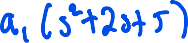 a₁(s²+2s+5)